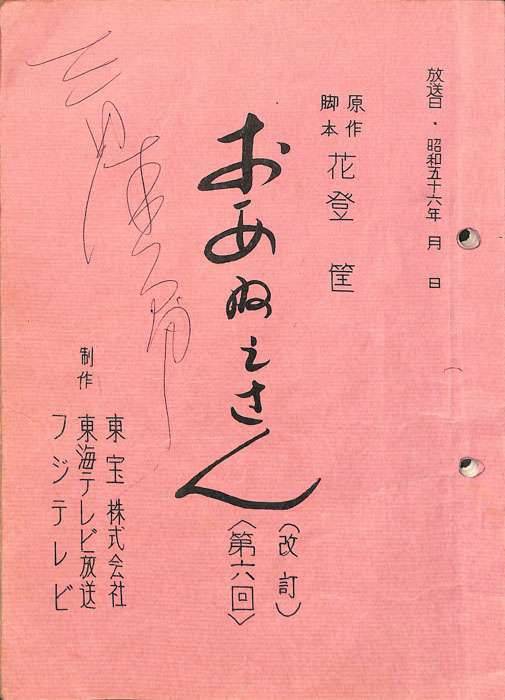 放送日・昭和五十六年 月 日
原作
脚本
花登 筐
おあねえさん
(改訂)
〈第六回〉
制作
東宝株式会社
東海テレビ放送
フジテレビ